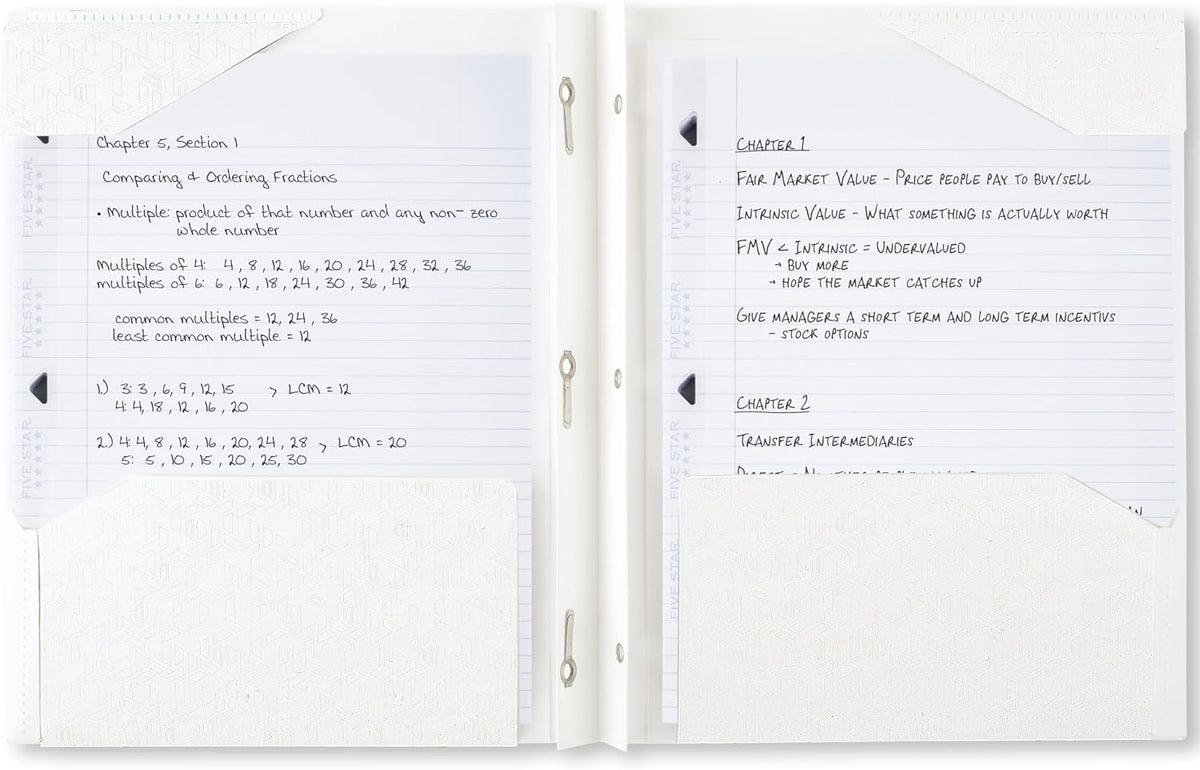 Chapter 5, Section 1
Comparing & Ordering Fractions
• Multiple: product of that number and any non-zero
whole number
multiples of 4: 4, 8, 12, 16, 20, 24, 28, 32, 36
multiples of 6: 6, 12, 18, 24, 30, 36, 42
common multiples = 12, 24, 36
least common multiple = 12
1.) 3: 3, 6, 9, 12, 15 > LCM = 12
4: 4, 18, 12, 16, 20
2.) 4: 4, 8, 12, 16, 20, 24, 28 > LCM = 20
5: 5, 10, 15, 20, 25, 30
FIVE STAR
FIVE STAR
FIVE STAR
CHAPTER 1
FAIR MARKET VALUE - PRICE PEOPLE PAY TO BUY/SELL
INTRINSIC VALUE - WHAT SOMETHING IS ACTUALLY WORTH
FMV < INTRINSIC = UNDERVALUED
→ BUY MORE
→ HOPE THE MARKET CATCHES UP
GIVE MANAGERS A SHORT TERM AND LONG TERM INCENTIVS
- STOCK OPTIONS
CHAPTER 2
TRANSFER INTERMEDIARIES
FIVE STAR
FIVE STAR
FIVE STAR
FIVE STAR